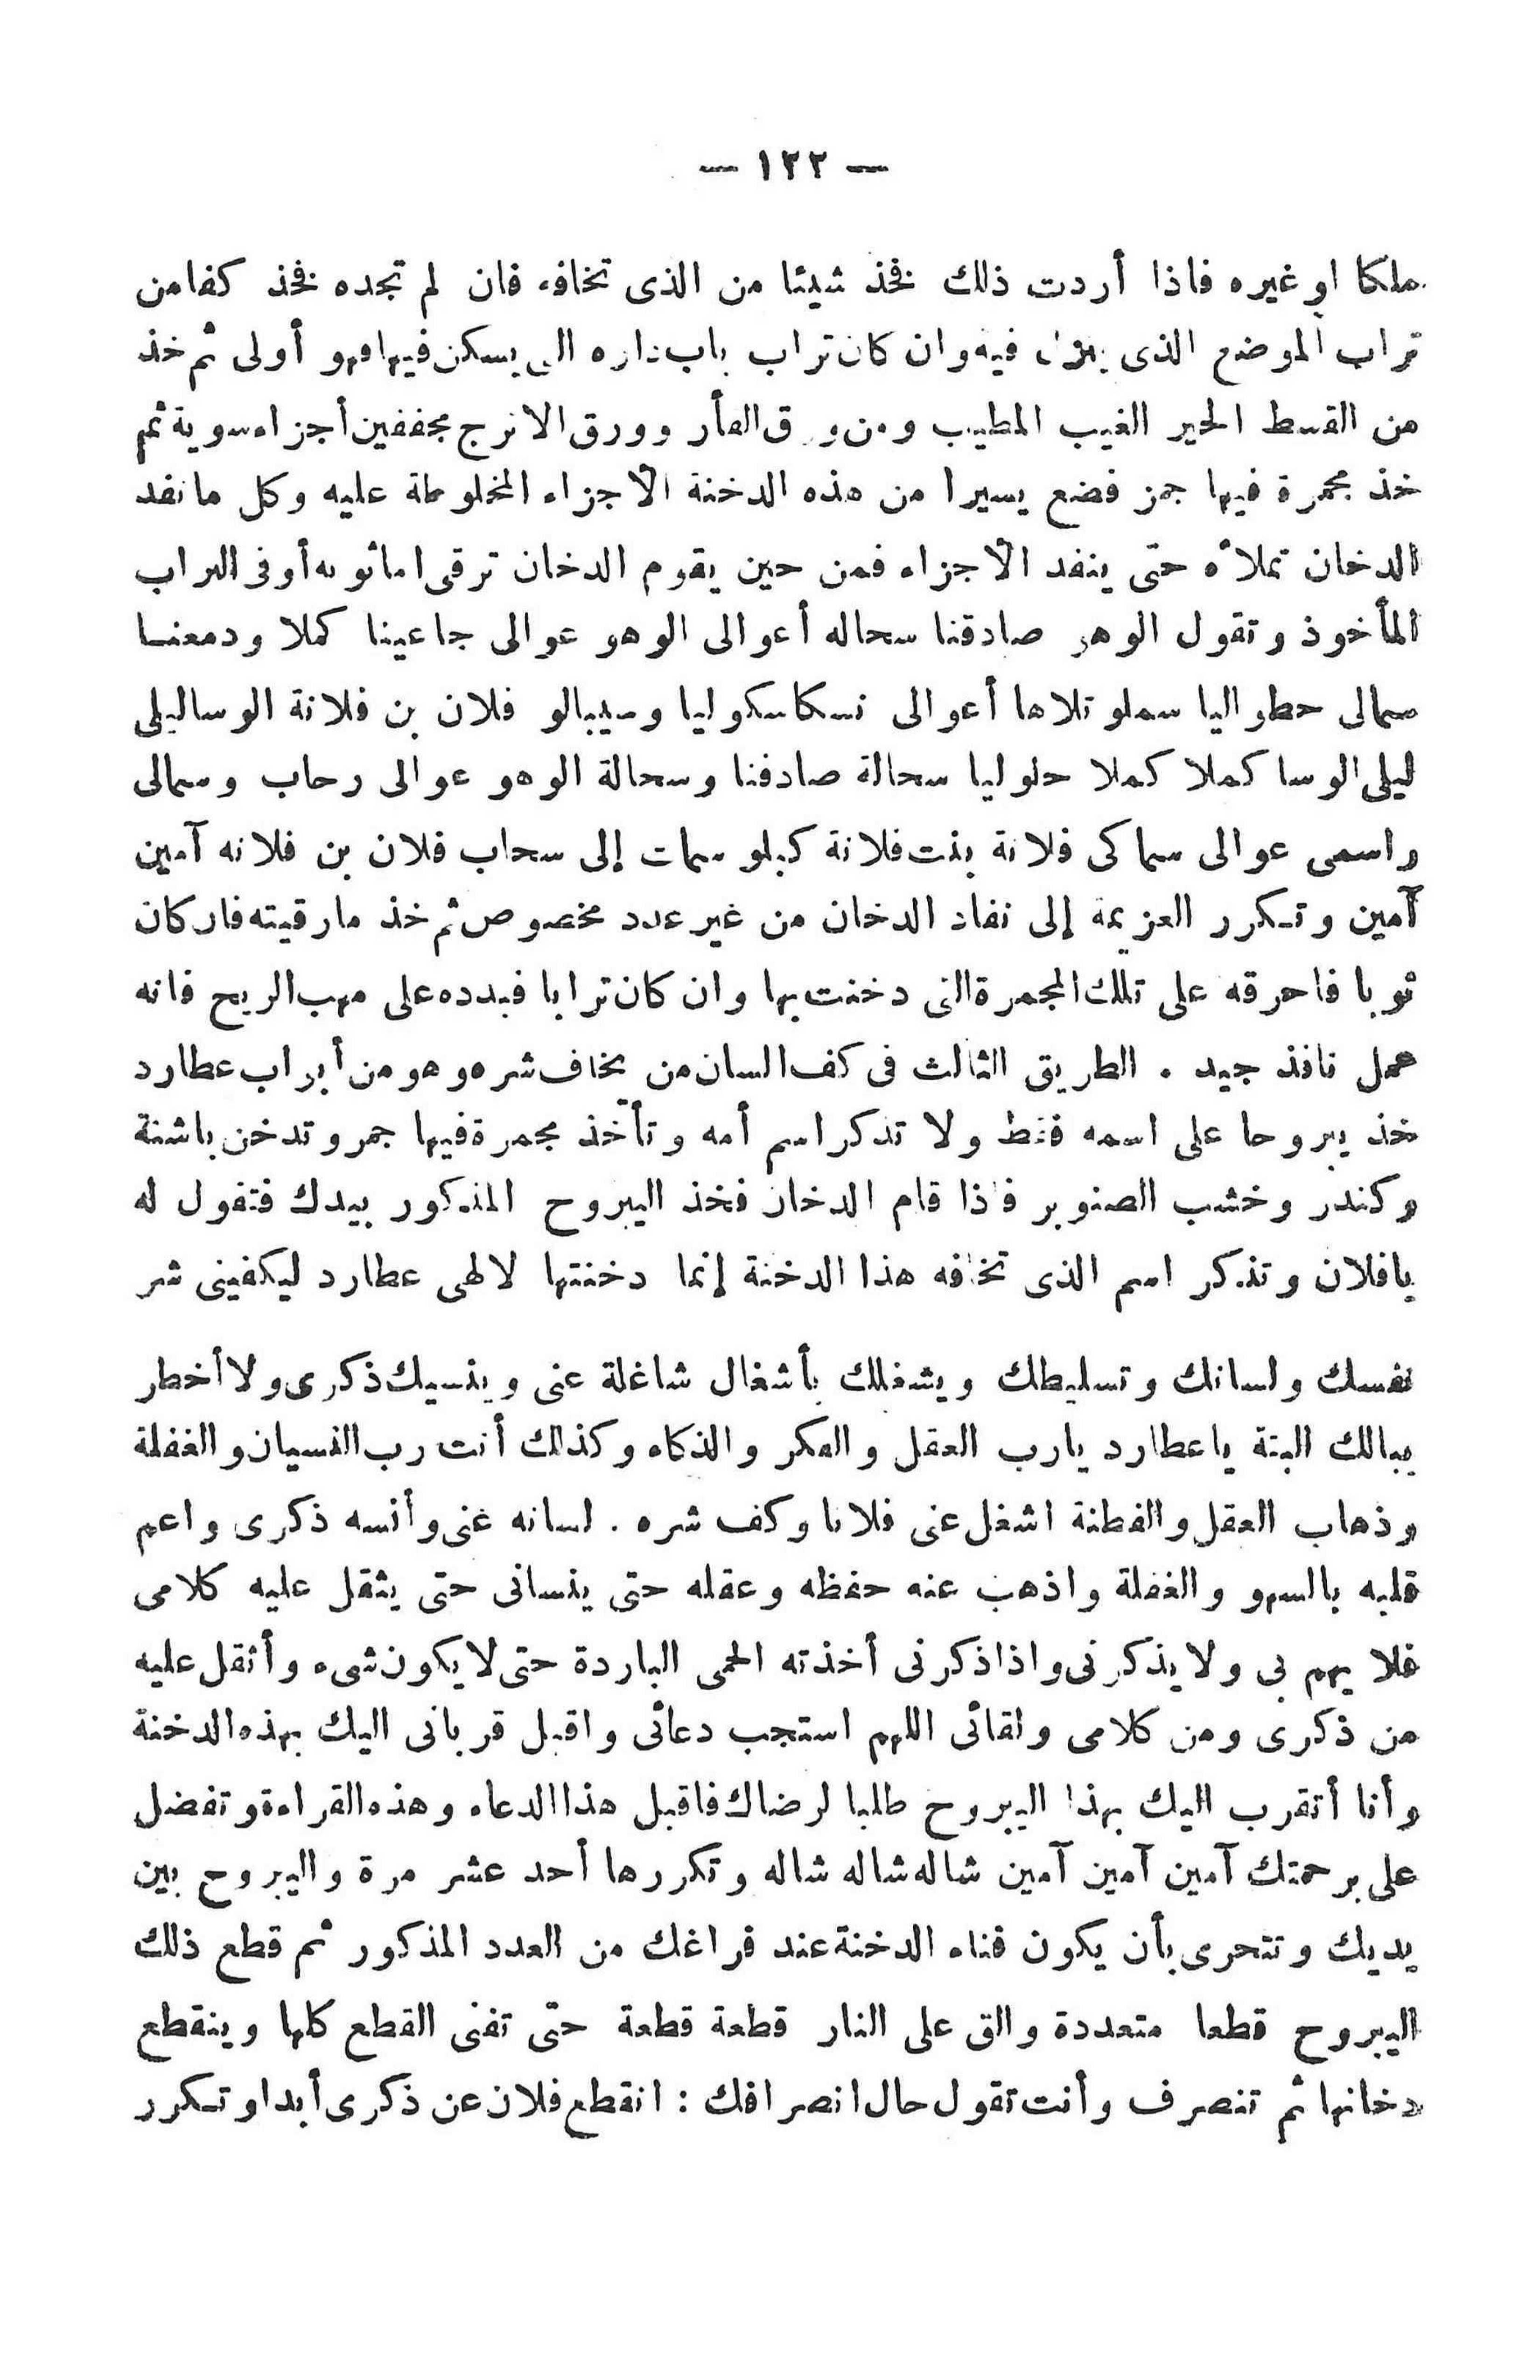 — ١٢٢ —
ملكا او غيره فاذا أردت ذلك فخذ شيئا من الذى تخافه فان لم تجده فخذ كفا من
تراب الموضع الذى فيه وان كان تراب باب داره التى يسكن فيها فهو أولى ثم خذ
من القسط الخير الغيب المطيب ومن ورق الغار وورق الاترج مجففين أجزاء سوية ثم
خذ مجمرة فيها جمر فضع يسيرا من هذه الدخنة الاجزاء المخلوطة عليه وكل ما نفد
الدخان تملأه حتى ينفد الاجزاء فمن حين يقوم الدخان ترقى اما ثوبه أو فى التراب
المأخوذ وتقول الوهر صادقنا سحاله أعوالى الوهو عوالى جاعينا كملا ودمعنا
سمالى حطواليا سملو تلاها أعوالى نسكاسكوليا وسيبالو فلان بن فلانة الوساليلى
ليلى الوسا كملا كملا حلوليا سحالة صادفنا وسحالة الوهو عوالى رحاب وسمالى
واسمى عوالى سماكى فلانة بنت فلانة كيلو سمات إلى سحاب فلان بن فلانه آمين
آمين وتكرر العزيمة إلى نفاد الدخان من غير عدد مخصوص ثم خذ ما رقيته فان كان
ثوبا فاحرقه على تلك المجمرة التى دخنت بها وان كان ترابا فبدده على مهب الريح فانه
عمل نافذ جيد . الطريق الثالث فى كف السان من يخاف شره وهو من أبواب عطارد
خذ يبروحا على اسمه فقط ولا تذكر اسم أمه وتأخذ مجمرة فيها جمر وتدخن باشنة
وكندر وخشب الصنوبر فاذا قام الدخان فخذ اليبروح المذكور بيدك فتقول له
يا فلان وتذكر اسم الذى تخافه هذا الدخنة إنما دخنتها لالهى عطارد ليكفينى شر
نفسك ولسانك وتسليطك ويشغلك بأشغال شاغلة عنى وينسيك ذكرى ولا أخطر
ببالك البتة يا عطارد يارب العقل والفكر والذكاء وكذلك أنت رب النسيان والغفلة
وذهاب العقل والفطنة اشغل عنى فلانا وكف شره . لسانه غنى وأنسه ذكرى واعم
قلبه بالسهو والغفلة واذهب عنه حفظه وعقله حتى ينسانى حتى يثقل عليه كلامى
فلا يهم بى ولا يذكرنى واذا ذكرنى أخذته الحمى الباردة حتى لا يكون شىء وأثقل عليه
من ذكرى ومن كلامى ولقائى اللهم استجب دعائى واقبل قربانى اليك بهذه الدخنة
وأنا أتقرب اليك بهذا اليبروح طلبا لرضاك فاقبل هذا الدعاء وهذه القراءة وتفضل
على برحمتك آمين آمين آمين شاله شاله شاله وتكررها أحد عشر مرة واليبروح بين
يديك وتتحرى بأن يكون فناء الدخنة عند فراغك من العدد المذكور ثم قطع ذلك
اليبروح قطعا متعددة والق على النار قطعة قطعة حتى تفنى القطع كلها وينقطع
دخانها ثم تنصرف وأنت تقول حال انصرافك : انقطع فلان عن ذكرى أبدا وتكرر